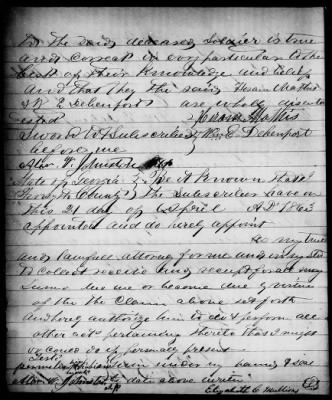 by the said deceased Soldier is true
and correct in every particular to the
best of their Knowledge and belief
and that they the said Hiram Mathis
& W E Debenport are wholly disinter
ested Hiram Mathis
Sworn to & Subscribed Wm E Debenport
before me
State of Georgia Be it Known that I
County the Subscriber have on
this 21 day of April AD 1863
appointed and do hereby appoint
my true
and Lawful attorney for me and in my name
to collect receive and receipt for all
sums due me or become due by virtue
of the Claim above set forth
and hereby authorize him to do & perform all
other acts pertaining thereto that I might
or could do if personally present
Test witness under my hand & seal
date above written
Elizabeth C Mullins